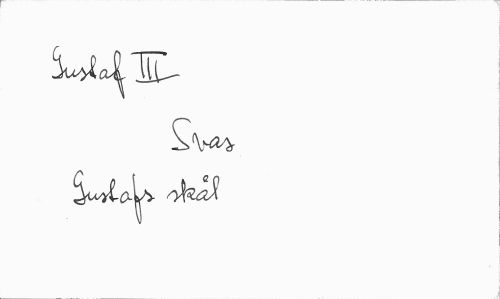 Gustaf III
Svas
Gustafs skål